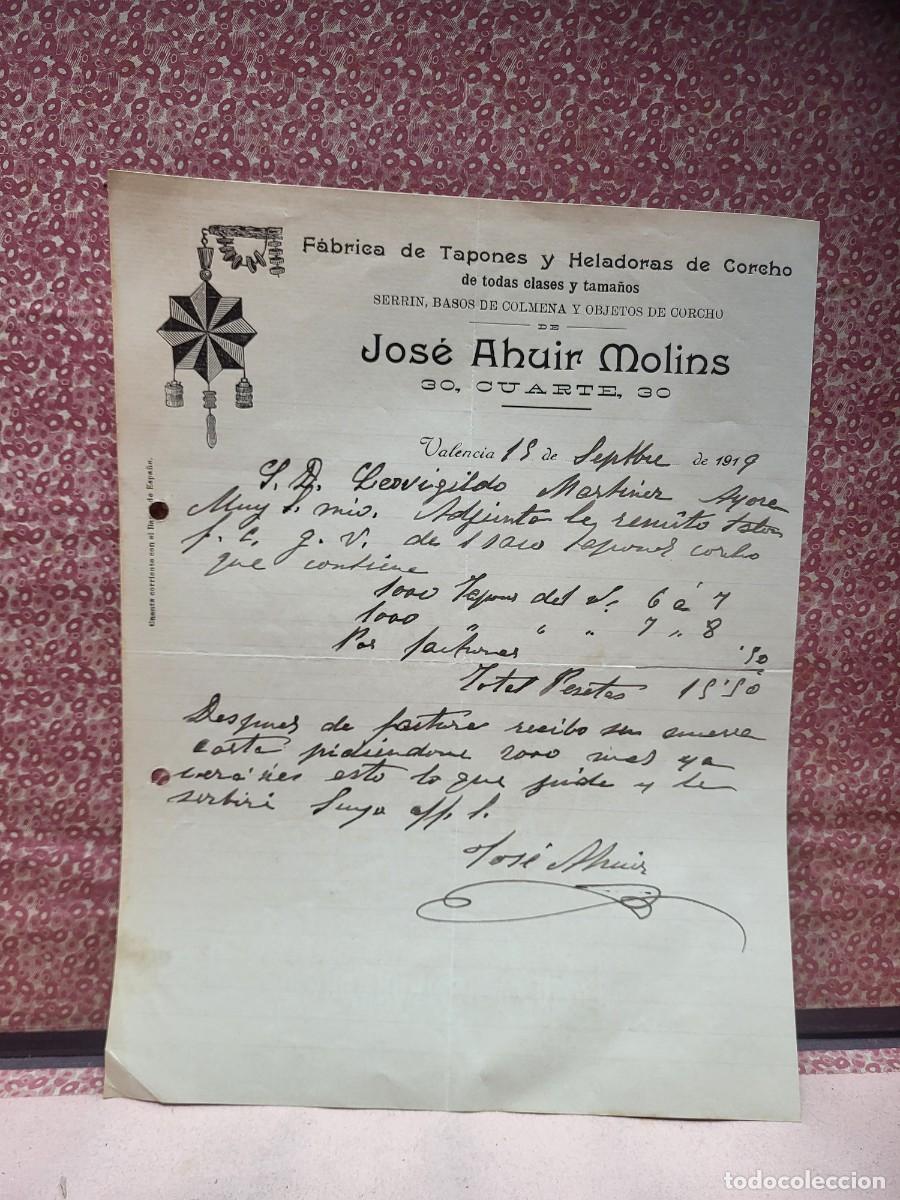 Fábrica de Tapones y Heladoras de Corcho
de todas clases y tamaños
SERRIN, BASOS DE COLMENA Y OBJETOS DE CORCHO
DE
José Ahuir Molins
30, CUARTE, 30
Cuenta corriente con el Banco de España.
Valencia 15 de Septbre de 1919
S. D. Leovigildo Martinez Ayora
Muy S. mio. Adjunto le remito
p. c. g. v. de 1 saco tapones corcho
que contiene
1000 Tapones del N. 6 á 7
1000 " " " 7 " 8
Por facturas '50
Total Pesetas 15'50
Despues de factura recibo su nueva
carta pidiendome 2000 mas ya
esto lo que pide y le
serbiré Suyo aff. S.
José Ahuir
todocoleccion